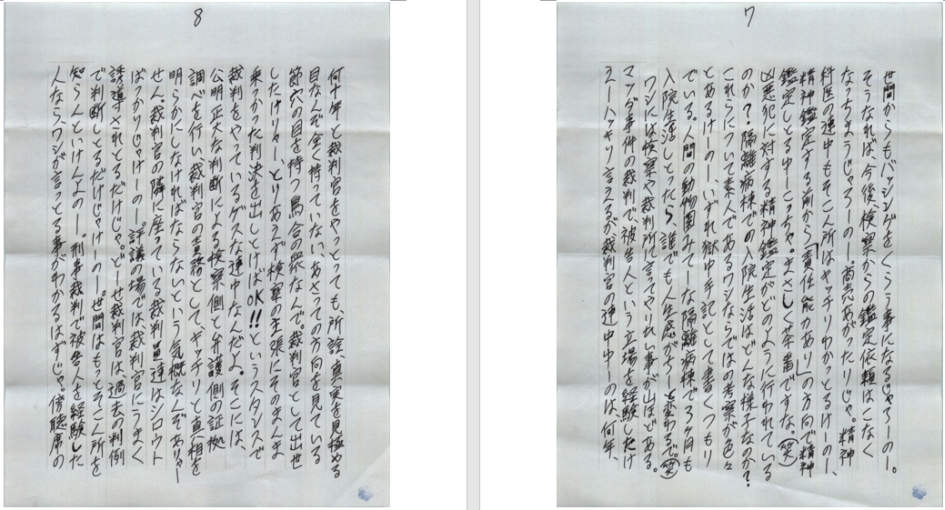 7
世間からもバッシングをくらう事になるじゃろーのー。
そうなれば、今後、検察からの鑑定依頼はこなく
なっちまうじゃろーのー。商売あがったりじゃ。精神
科医の連中もそこん所はキッチリわかっとるけーのー、
精神鑑定する前から「責任能力あり」の方向で精神
鑑定しとるゆーこっちゃ。まさしく茶番ですな。(笑)
凶悪犯に対する精神鑑定がどのように行われている
のか?隔離病棟での入院生活はどんな様子なのか?
これらについて素人であるワシならではの考察が色々
とあるけーのー、いずれ獄中手記として書くつもり
でいる。人間の動物園みてーな隔離病棟で3ヶ月も
入院生活しとったら、誰でも人生感がちーと変わるで。(笑)
ワシには検察や裁判所に言ってやりたい事が山ほどある。
マツダ事件の裁判で、被告人という立場を経験しただけ
にハッキリ言えるが裁判官の連中ゆーのは何年、
8
何十年と裁判官をやっとっても、所詮、真実を見極める
目なんぞ全く持っていない、あさっての方向を見ている
節穴の目を持つ烏合の衆なんで。裁判官として出世
したけりゃー、とりあえず検察の主張にそのまんま
乗っかった判決を出しとけばOK!!というスタンスで
裁判をやっているゲスな連中なんだよ。そこには、
公明正大な判断による検察側と弁護側の証拠
調べを行い、裁判官の責務としてキッチリと真相を
明らかにしなければならないという気概なんぞありゃー
せん。裁判官の隣に座っている裁判員達はシロウト
ばっかりじゃけーのー、評議の場では裁判官にうまく
誘導されとるだけじゃ。どーせ裁判官は過去の判例
で判断しとるだけじゃけーのー。世間はもっとそこん所を
知らんといけんよのー。刑事裁判で被告人を経験した
人ならワシが言っとる事がわかるはずじゃ。傍聴席の